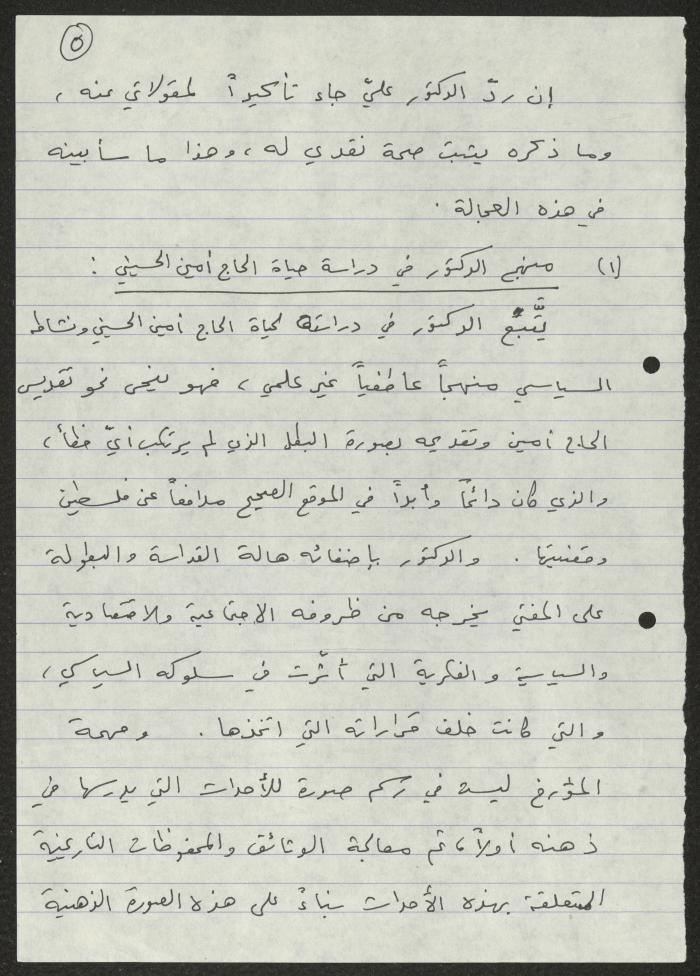 ٥
إن ردّ الدكتور عليّ جاء تأكيداً لمقولاتي عنه ،
وما ذكره يثبت صحة نقدي له ، وهذا ما سأبينه
في هذه العجالة .
(١) منهج الدكتور في دراسة حياة الحاج أمين الحسيني :
يتَّبع الدكتور في دراسته لحياة الحاج أمين الحسيني ونشاطه
السياسي منهجاً عاطفياً غير علمي ، فهو ينحى نحو تقديس
الحاج أمين وتقديمه بصورة البطل الذي لم يرتكب أيّ خطأ ،
والذي كان دائماً وأبداً في الموقع الصحيح مدافعاً عن فلسطين
وقضيتها . والدكتور بإضفائه هالة القداسة والبطولة
على المفتي يخرجه من ظروفه الاجتماعية والاقتصادية
والسياسية والفكرية التي أثّرت في سلوكه السياسي ،
والتي كانت خلف قراراته التي اتخذها . ومهمة
المؤرخ ليست في رسم صورة للأحداث التي يدرسها في
ذهنه أولاً ، ثم معالجة الوثائق والمحفوظات التاريخية
المتعلقة بهذه الأحداث بناءً على هذه الصورة الذهنية